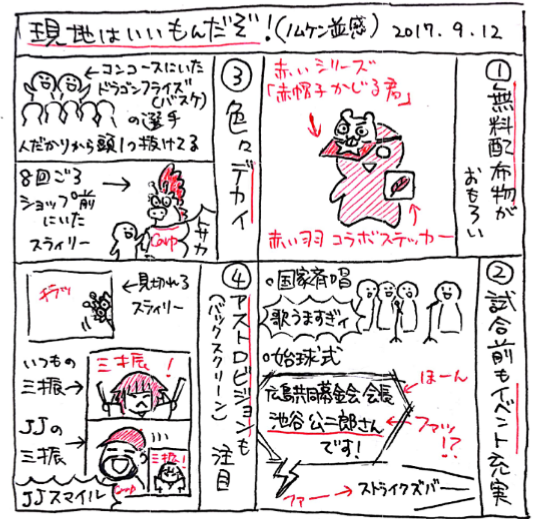 現地はいいもんだぞ!(ノムケン並感) 2017.9.12
①無料配布物が
おもろい
赤いシリーズ
「赤帽子かじる君」
赤い羽コラボステッカー
②試合前もイベント充実
○国家斉唱
歌うますぎィ
○始球式
広島共同募金会会長
池谷公二郎さん
です!
ほーん
ファッ
!?
ファー→ストライクズバー
③色々デカイ
←コンコースにいた
ドラゴンフライズ
(バスケ)
の選手
人だかりから頭1つ抜けてる
8回ごろ
ショップ前
にいた
スライリー
トサカ
Carp
④アストロビジョンも注目
(バックスクリーン)
チラッ
←見切れる
スライリー
いつもの
三振→
三振!
JJの
三振→
三振!
JJスマイル
Carp